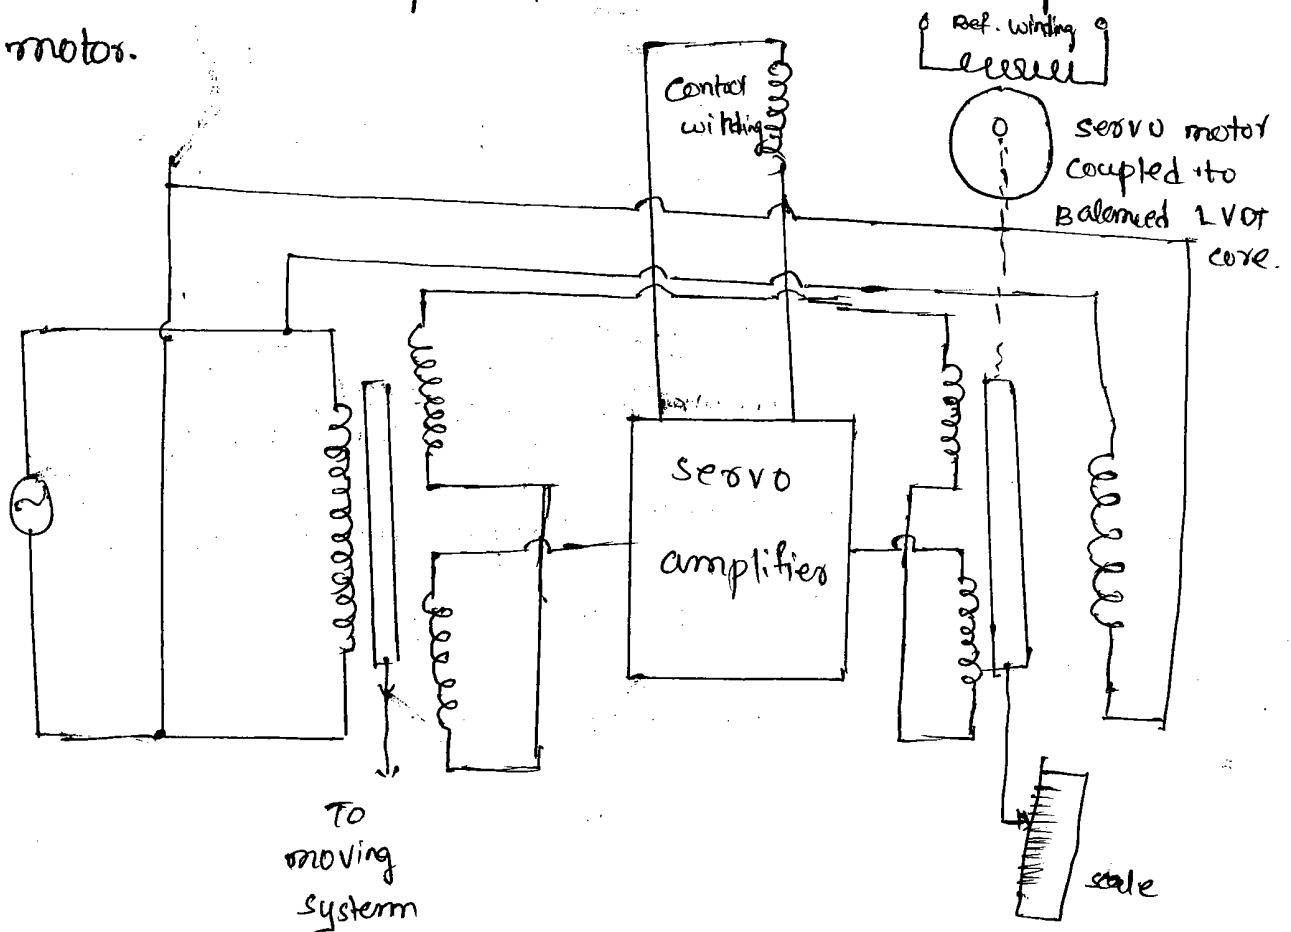 motor.
Ref. winding
Contool
winding
servo motor
coupled to
Balanced LVDT
core.
servo
amplifier
To
moving
systerm
scale